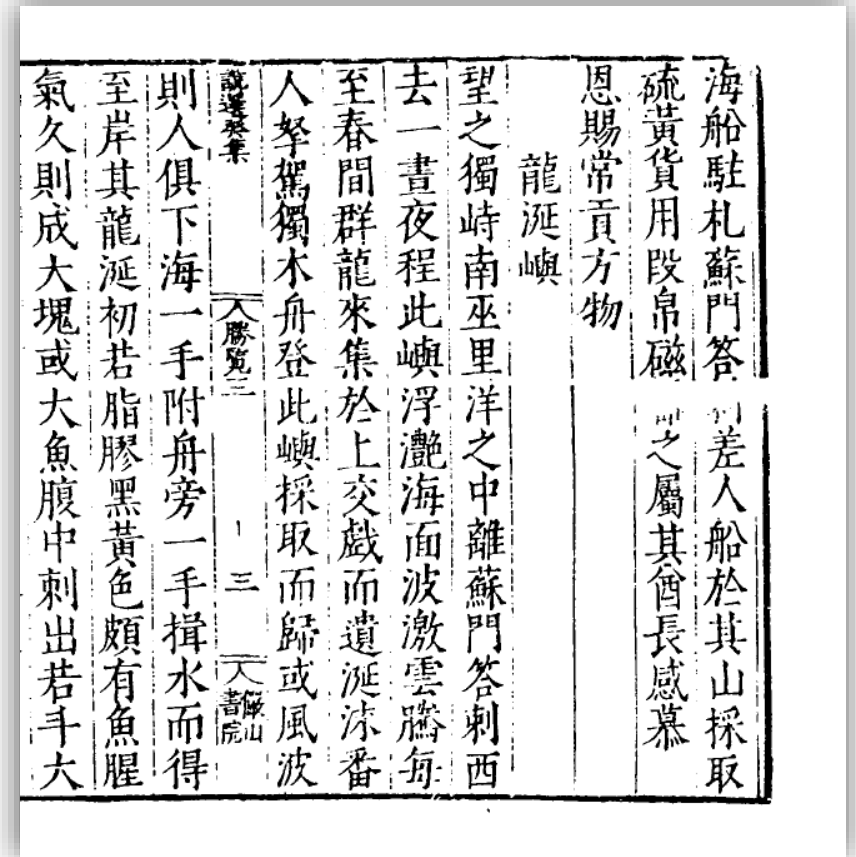 海船駐札蘇門答剌差人船於其山採取
硫黃貨用段帛磁器之屬其酋長感慕
恩賜常貢方物
龍涎嶼
望之獨峙南巫里洋之中離蘇門答剌西
去一晝夜程此嶼浮灔海面波激雲騰每
至春間群龍來集於上交戲而遺涎沫番
人拏駕獨木舟登此嶼採取而歸或風波
說選癸集 勝覽三 三 儼山書院
則人俱下海一手附舟旁一手揖水而得
至岸其龍涎初若脂膠黑黃色頗有魚腥
氣久則成大塊或大魚腹中刺出若斗大